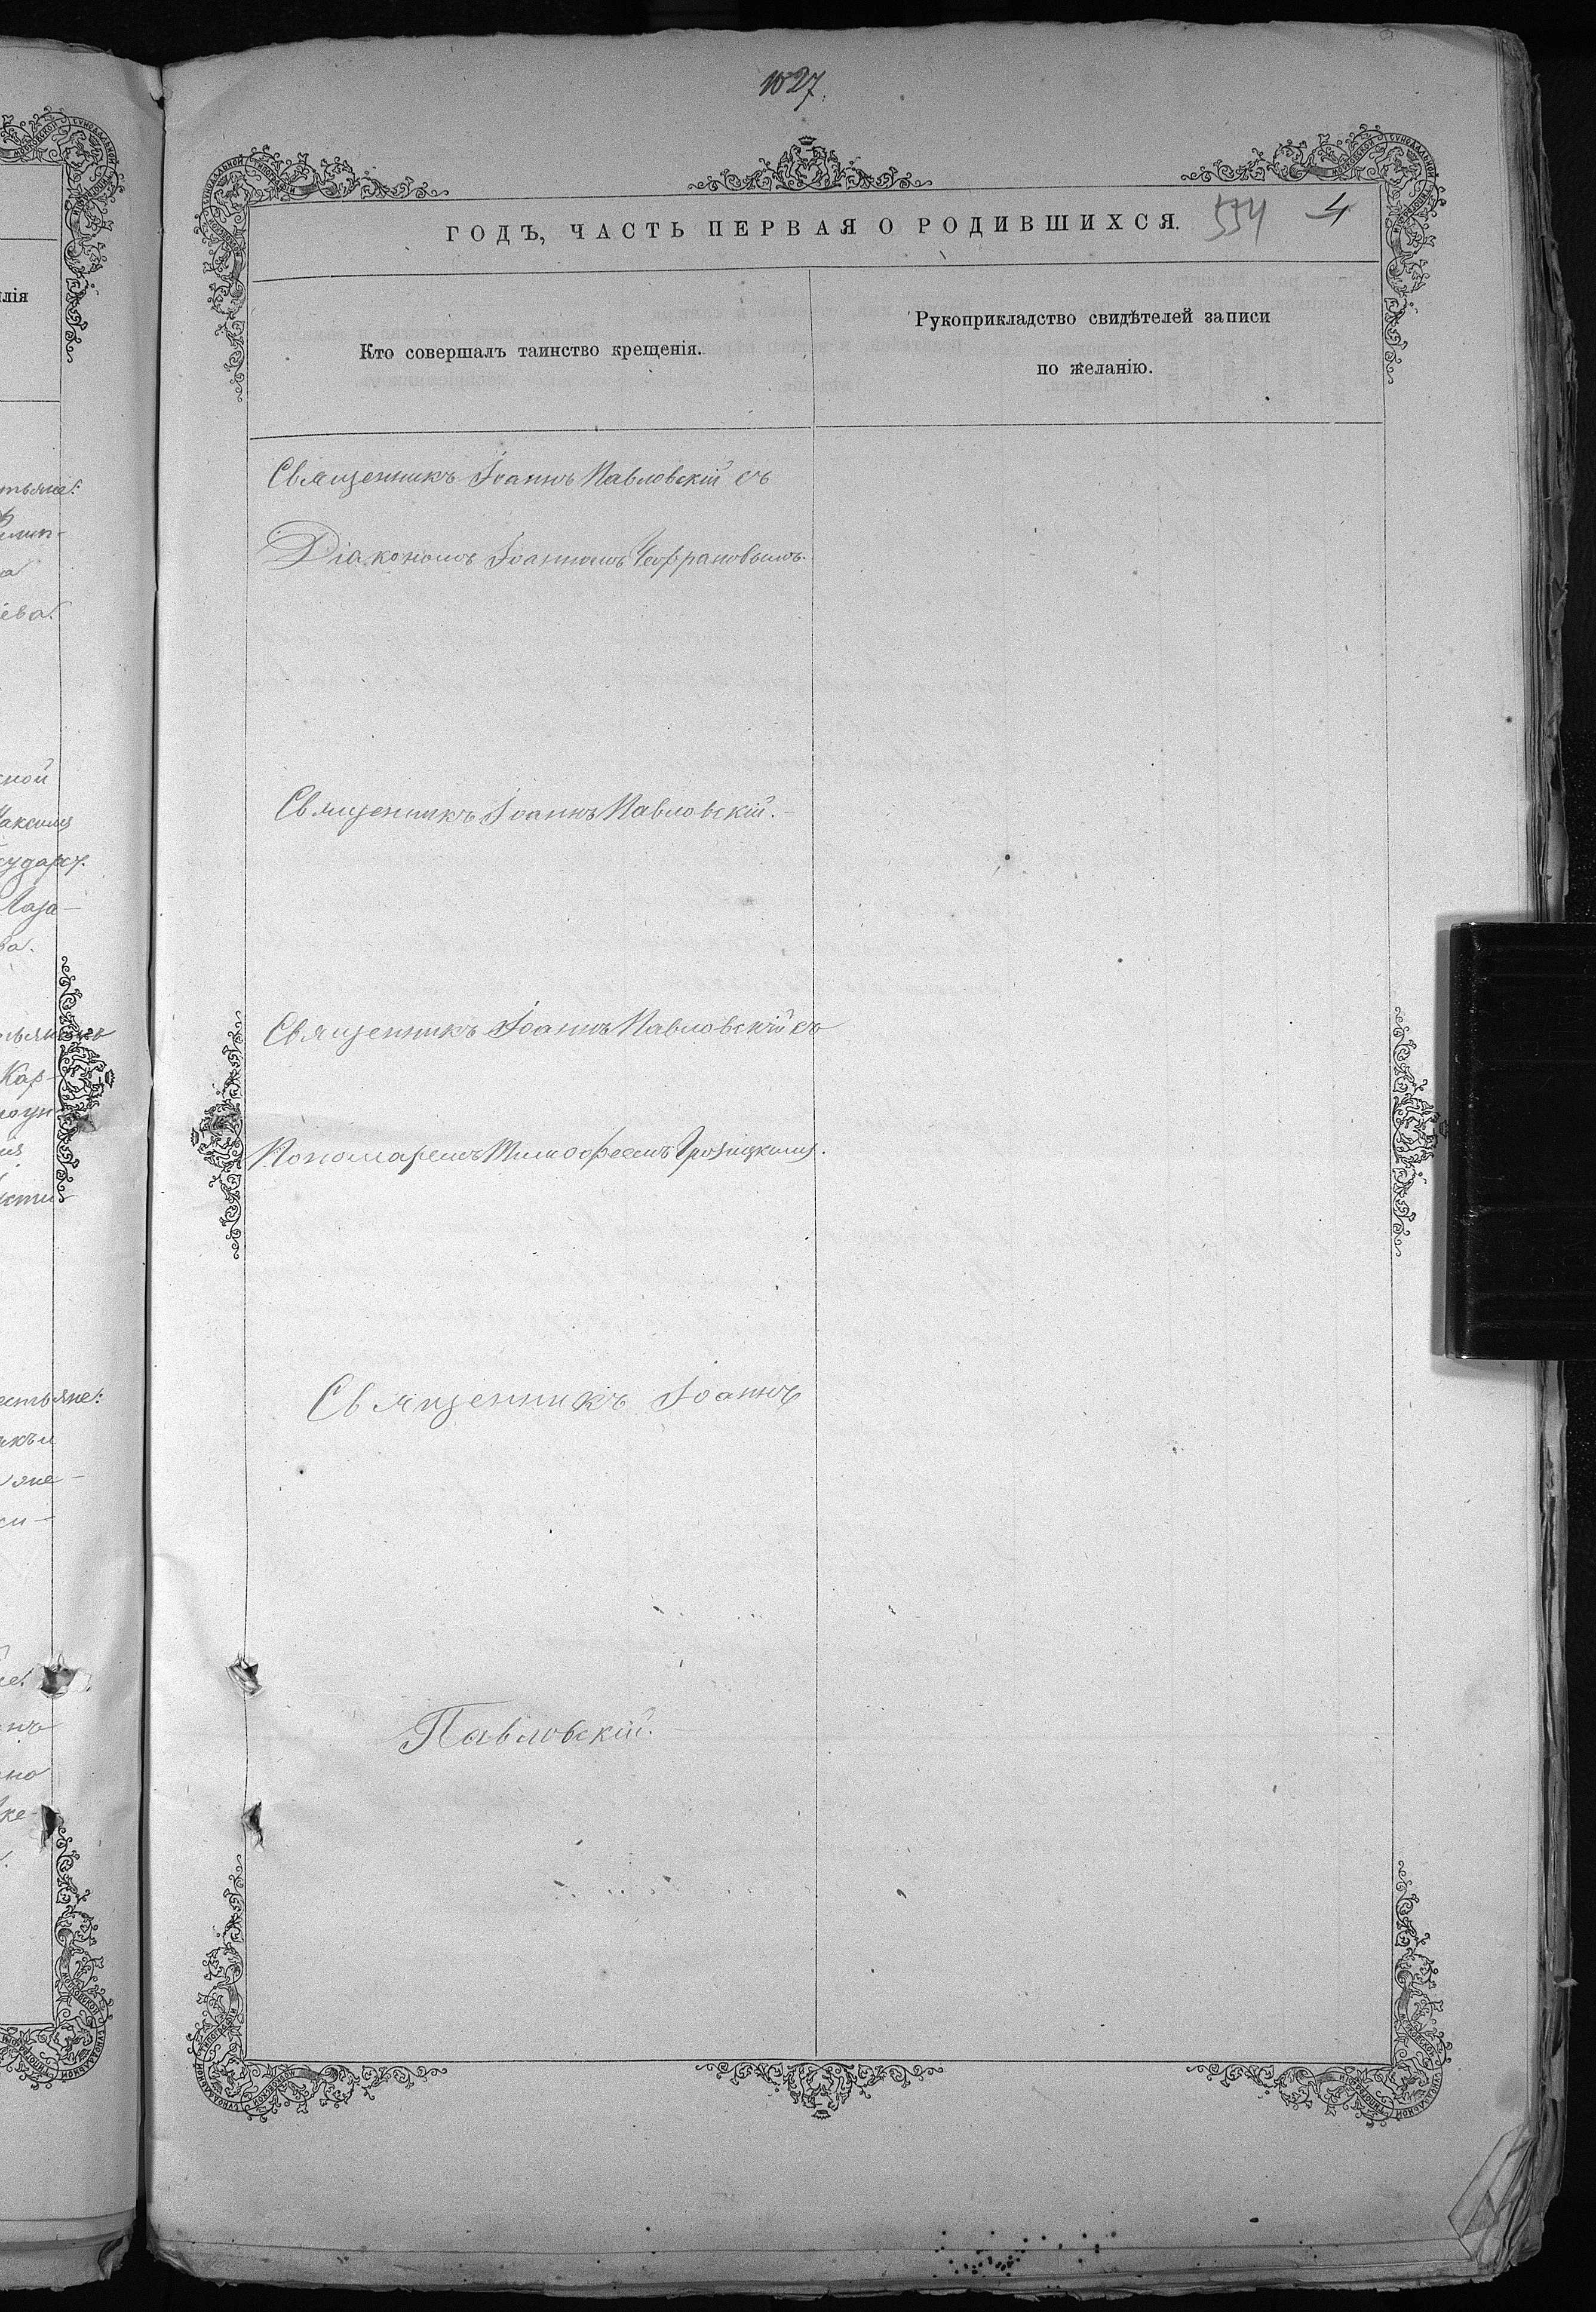 1027.
ГОДЪ, ЧАСТЬ ПЕРВАЯ О РОДИВШИХСЯ.
554 4
Кто совершалъ таинство крещенія.
Рукоприкладство свидѣтелей записи
по желанію.
Священникъ Іоаннъ Павловскій съ
Діакономъ Іоанномъ
Священникъ Іоаннъ Павловскій.
Священникъ Іоаннъ Павловскій съ
Пономаремъ Тимофеемъ
Священникъ Іоаннъ
Павловскій.
лія
тьяне:
ева.
ной
Лаза-
ва.
Кар-